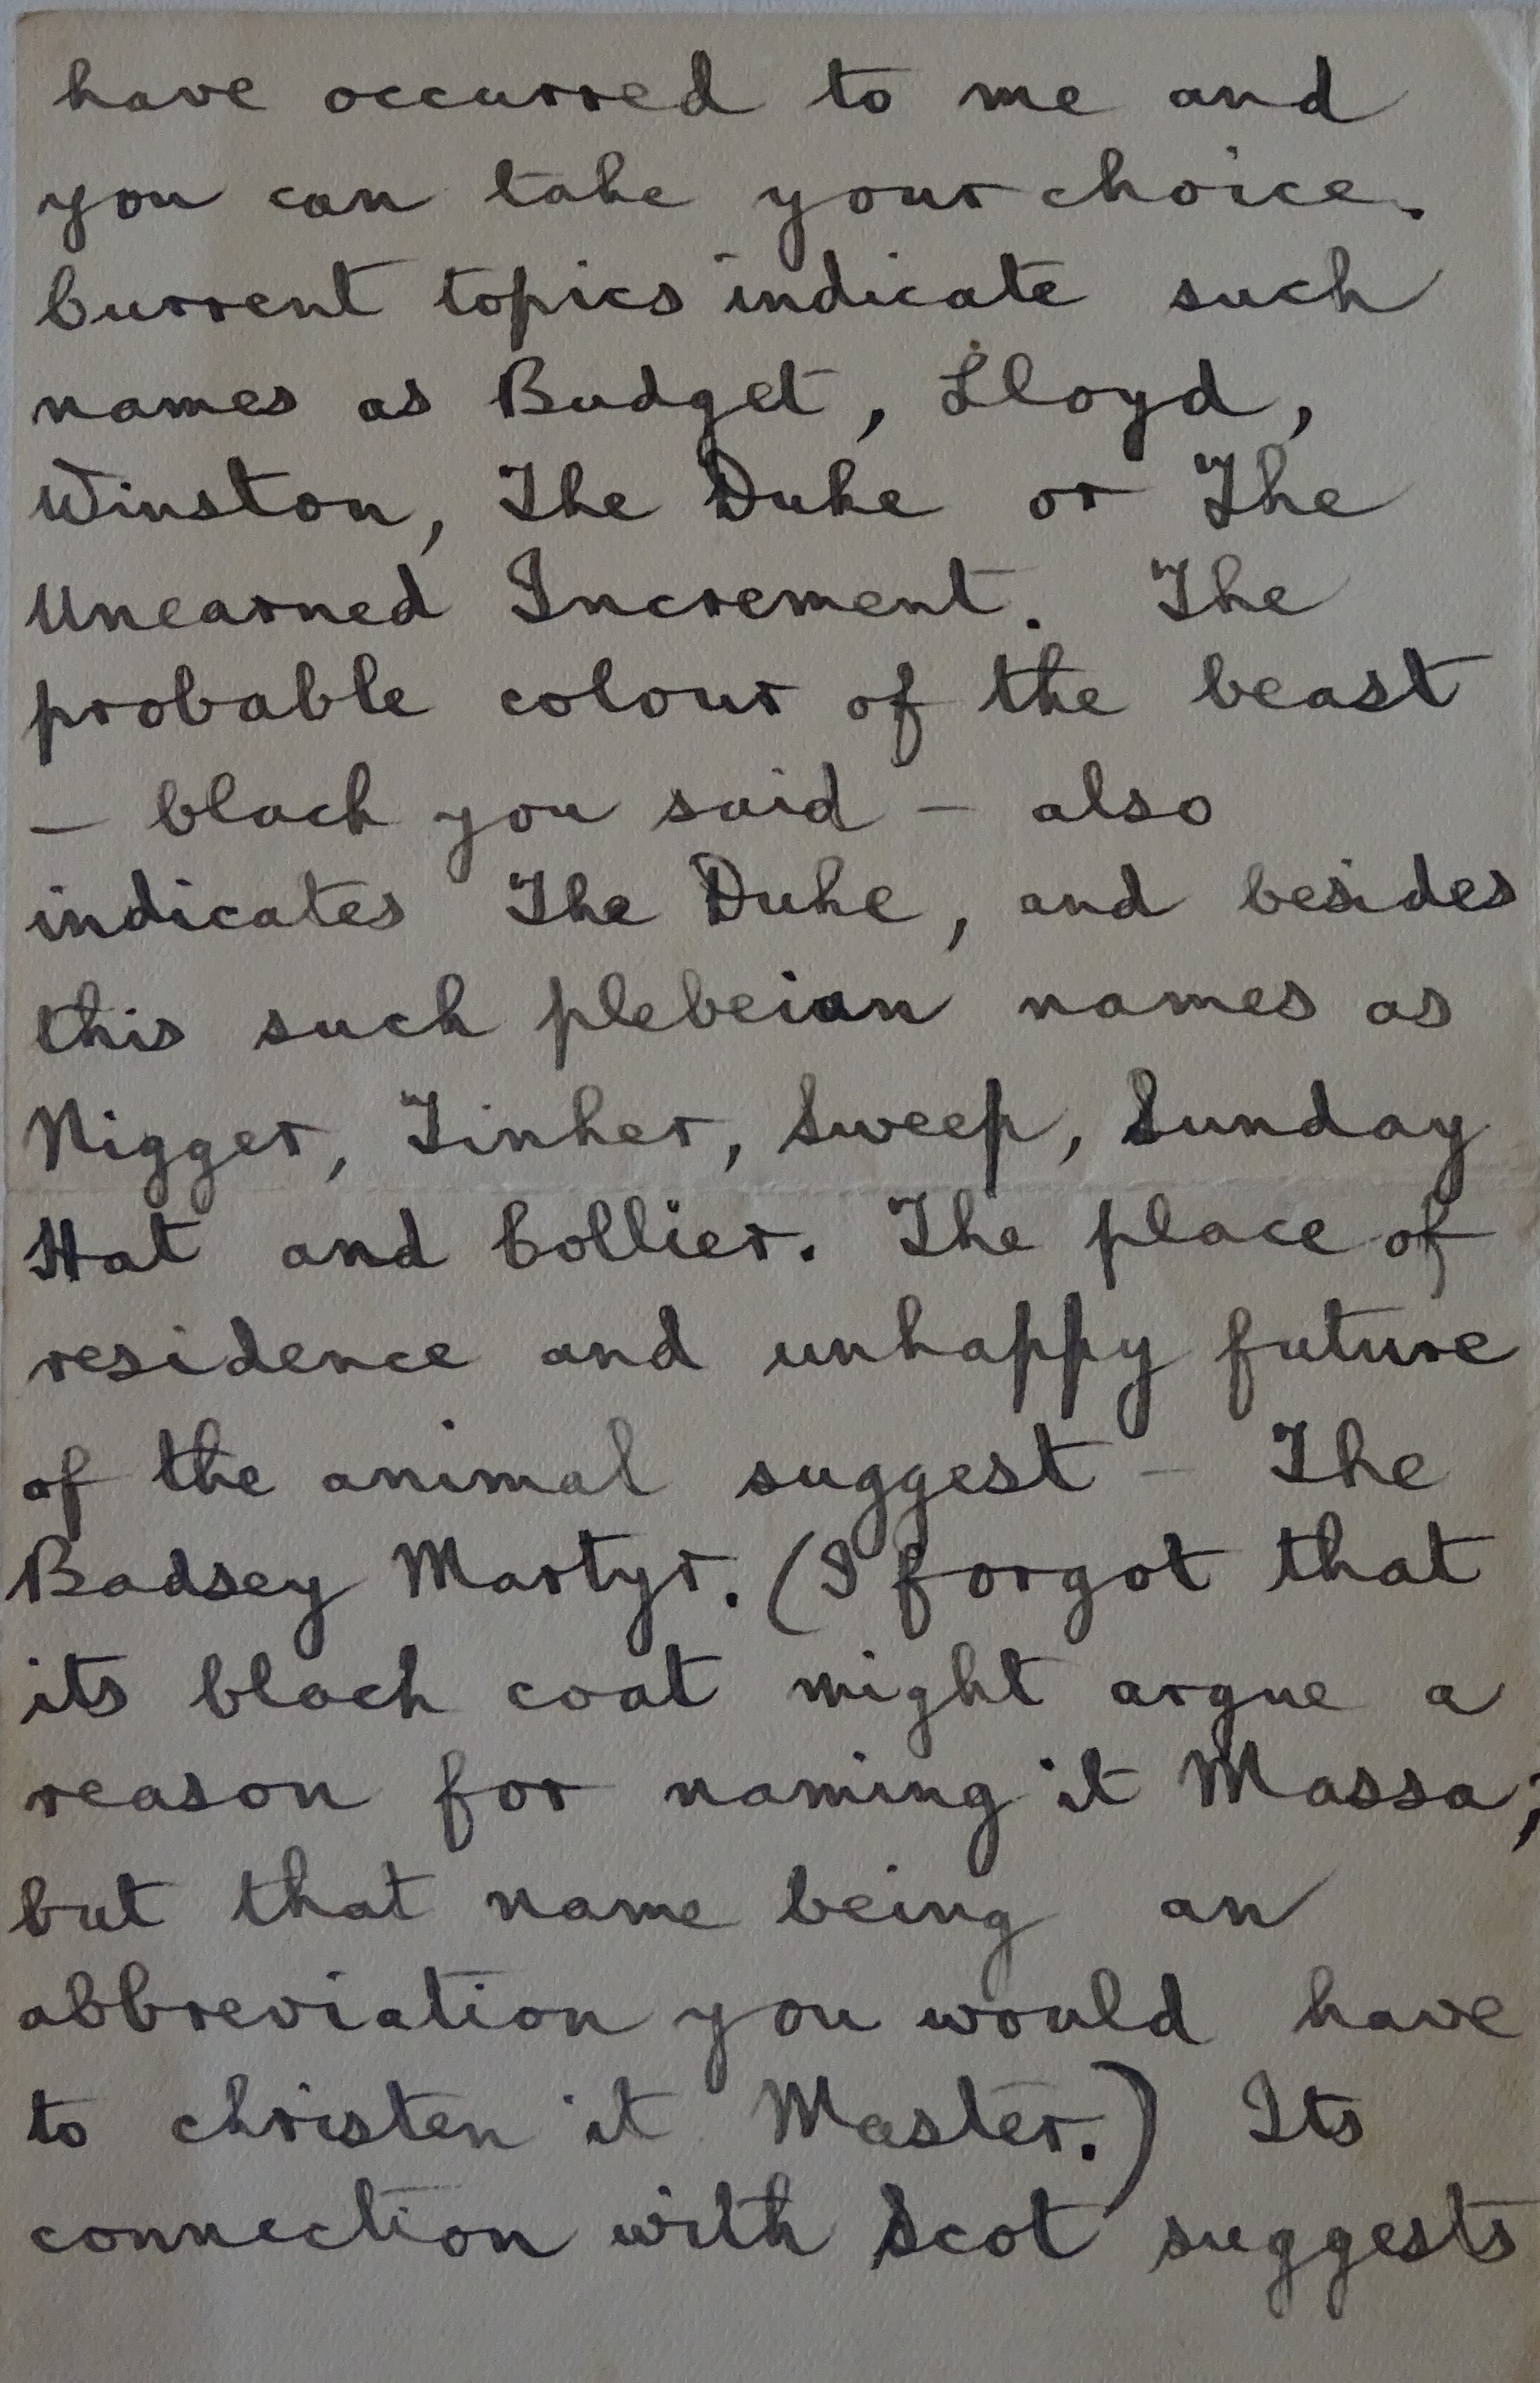 have occurred to me and
you can take your choice.
Current topics indicate such
names as Budget, Lloyd,
Winston, The Duke or The
Unearned Increment. The
probable colour of the beast
– black you said – also
indicates The Duke, and besides
this such plebeian names as
Nigger, Tinker, Sweep, Sunday
Hat and Collier. The place of
residence and unhappy future
of the animal suggest – The
Badsey Martyr. (I forgot that
its black coat might argue a
reason for naming it Massa;
but that name being an
abbreviation you would have
to christen it Master.) Its
connection with Scot suggests